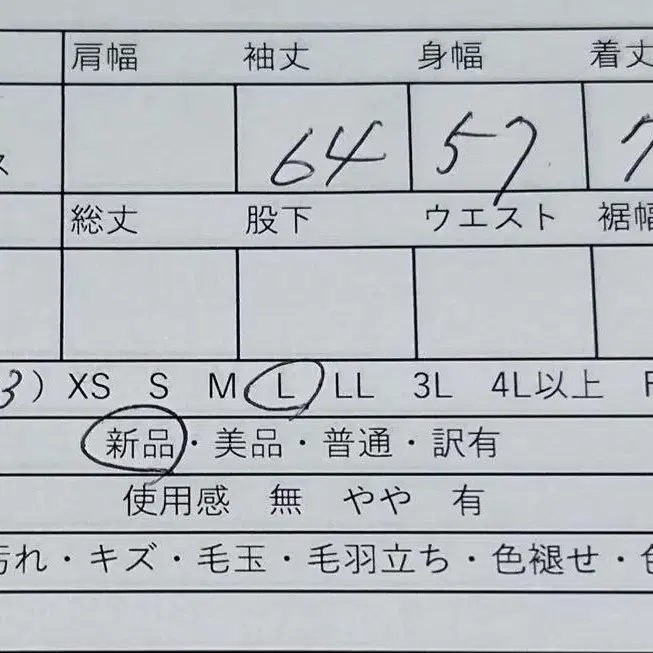 肩幅 袖丈 身幅 着丈
ス 64 57 7
総丈 股下 ウエスト 裾幅
3) XS S M L LL 3L 4L以上 F
新品・美品・普通・訳有
使用感 無 やや 有
汚れ・キズ・毛玉・毛羽立ち・色褪せ・色